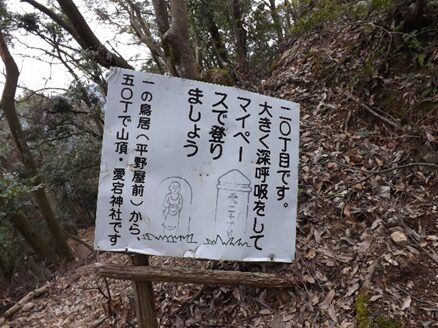 二〇丁目です。
大きく深呼吸をして
マイペー
スで登り
ましょう
一の鳥居(平野屋前)から
五〇丁で山頂・愛宕神社です